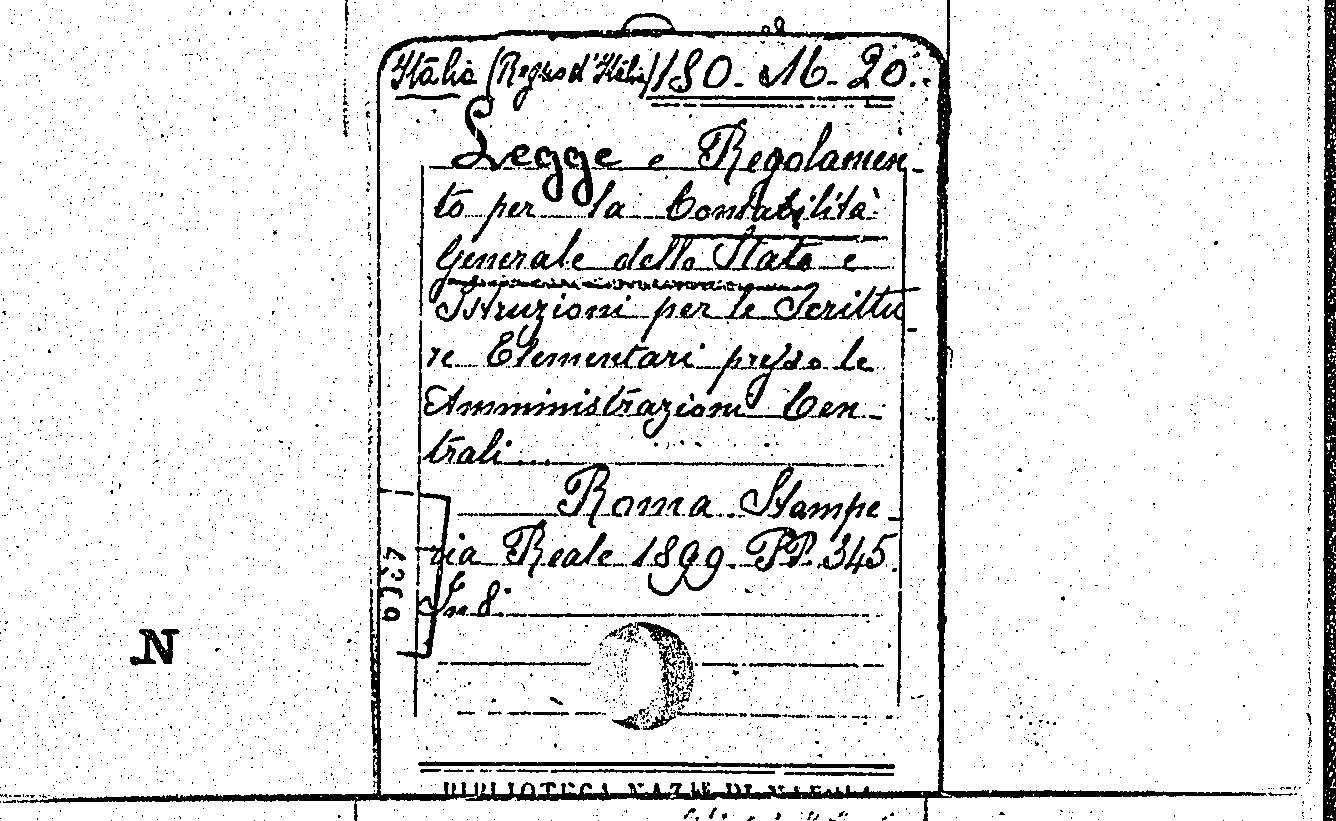 Italia (Regno d'Italia) 180. M. 20.
Legge e Regolamen-
to per la Contabilità
Generale dello Stato e
Istruzioni per le Scrittu-
re Elementari presso le
Amministrazioni Cen-
trali
Roma. Stampe-
ria Reale 1899. PP. 345.
In 8.
N
BIBLIOTECA NAZ